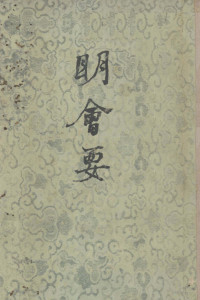 明會要